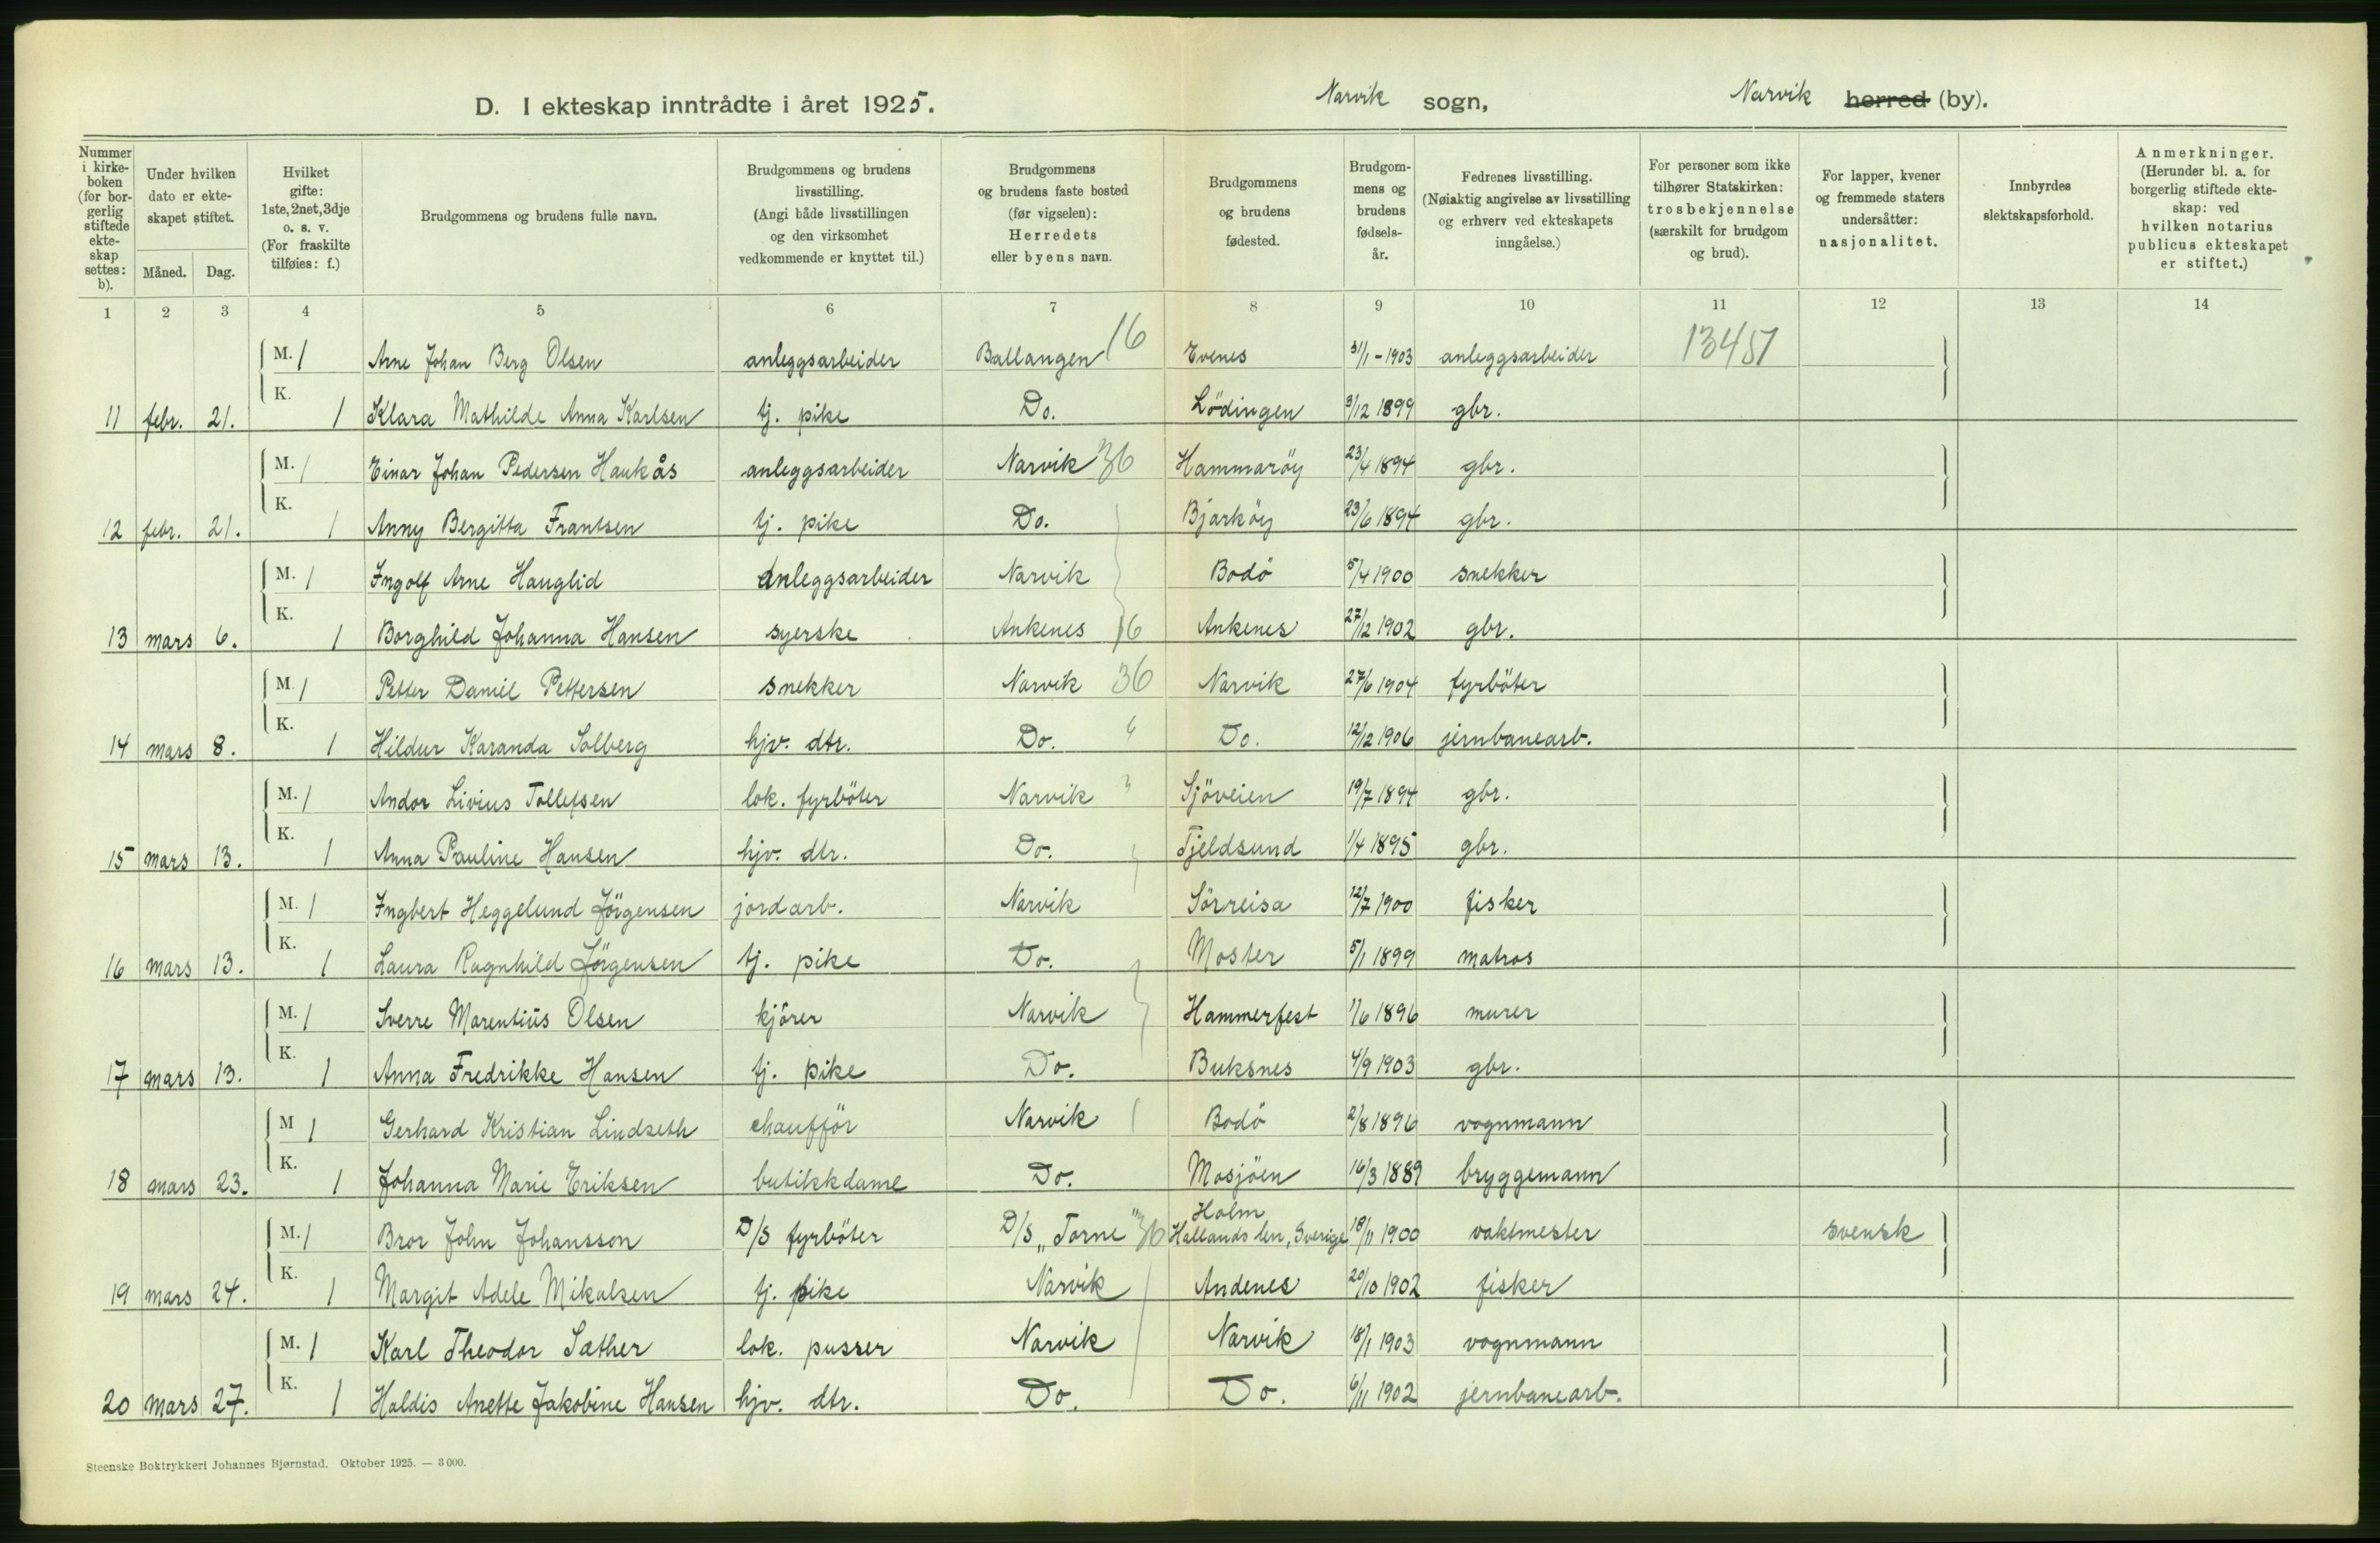 D. I ekteskap inntrådte i året 1925. Narvik sogn, Narvik herred (by).
Nummer i kirkeboken (for borgerlig stiftede ekteskap settes: b).
Under hvilken dato er ekteskapet stiftet.
Måned. Dag.
Hvilket gifte: 1ste, 2net, 3dje o. s. v. (For fraskilte tilføies: f.)
Brudgommens og brudens fulle navn.
Brudgommens og brudens livsstilling. (Angi både livsstillingen og den virksomhet vedkommende er knyttet til.)
Brudgommens og brudens faste bosted (før vigselen): Herredets eller byens navn.
Brudgommens og brudens fødested.
Brudgommens og brudens fødselsår.
Fedrenes livsstilling. (Nøiaktig angivelse av livsstilling og erhverv ved ekteskapets inngåelse.)
For personer som ikke tilhører Statskirken: trosbekjennelse (særskilt for brudgom og brud).
For lapper, kvener og fremmede staters undersåtter: nasjonalitet.
Innbyrdes slektskapsforhold.
Anmerkninger. (Herunder bl. a. for borgerlig stiftede ekteskap: ved hvilken notarius publicus ekteskapet er stiftet.)
1 2 3 4 5 6 7 8 9 10 11 12 13 14
M. 1 Arne Johan Berg Olsen anleggsarbeider Ballangen 16 Evenes 31/1-1903 anleggsarbeider 13451
11 febr. 21. K. 1 Klara Mathilde Anna Karlsen tj. pike Do. Lödingen 3/12 1899 gbr.
M. 1 Einar Johan Pedersen Haukås anleggsarbeider Narvik 36 Hammaröy 23/4 1894 gbr.
12 febr. 21. K. 1 Anny Bergitta Frantsen tj. pike Do. Bjarköy 23/6 1894 gbr.
M. 1 Ingolf Arne Hauglid anleggsarbeider Narvik Bodö 5/4 1900 snekker
13 mars 6. K. 1 Borghild Johanna Hansen syerske Ankenes 16 Ankenes 27/12 1902 gbr.
M. 1 Petter Daniel Pettersen snekker Narvik 36 Narvik 27/6 1904 fyrböter
14 mars 8. K. 1 Hildur Karanda Solberg hjv. dtr. Do. Do. 12/12 1906 jernbanearb.
M. 1 Andor Livius Tollefsen lok. fyrböter Narvik Sjöveien 19/7 1894 gbr.
15 mars 13. K. 1 Anna Pauline Hansen hjv. dtr. Do. Tjeldsund 1/4 1895 gbr.
M. 1 Ingbert Heggelund Jörgensen jordarb. Narvik Sörreisa 12/7 1900 fisker
16 mars 13. K. 1 Laura Ragnhild Jörgensen tj. pike Do. Moster 5/1 1899 matros
M. 1 Sverre Marentius Olsen kjörer Narvik Hammerfest 1/6 1896 murer
17 mars 13. K. 1 Anna Fredrikke Hansen tj. pike Do. Buksnes 4/9 1903 gbr.
M 1 Gerhard Kristian Lindseth chaufför Narvik Bodö 2/8 1896 vognmann
18 mars 23. K. 1 Johanna Marie Eriksen butikkdame Do. Mosjöen 16/3 1889 bryggemann
M. 1 Bror John Johansson D/S fyrböter D/S „Torne" 36 Holm Hallands len, Sverige 18/11 1900 vaktmester svensk
19 mars 24. K. 1 Margit Adele Mikalsen tj. pike Narvik Andenes 20/10 1902 fisker
M. 1 Karl Theodor Sæther lok. pusser Narvik Narvik 18/1 1903 vognmann
20 mars 27. K. 1 Haldis Anette Jakobine Hansen hjv. dtr. Do. Do. 6/11 1902 jernbanearb.
Steenske Boktrykkeri Johannes Bjørnstad. Oktober 1925. — 3 000.